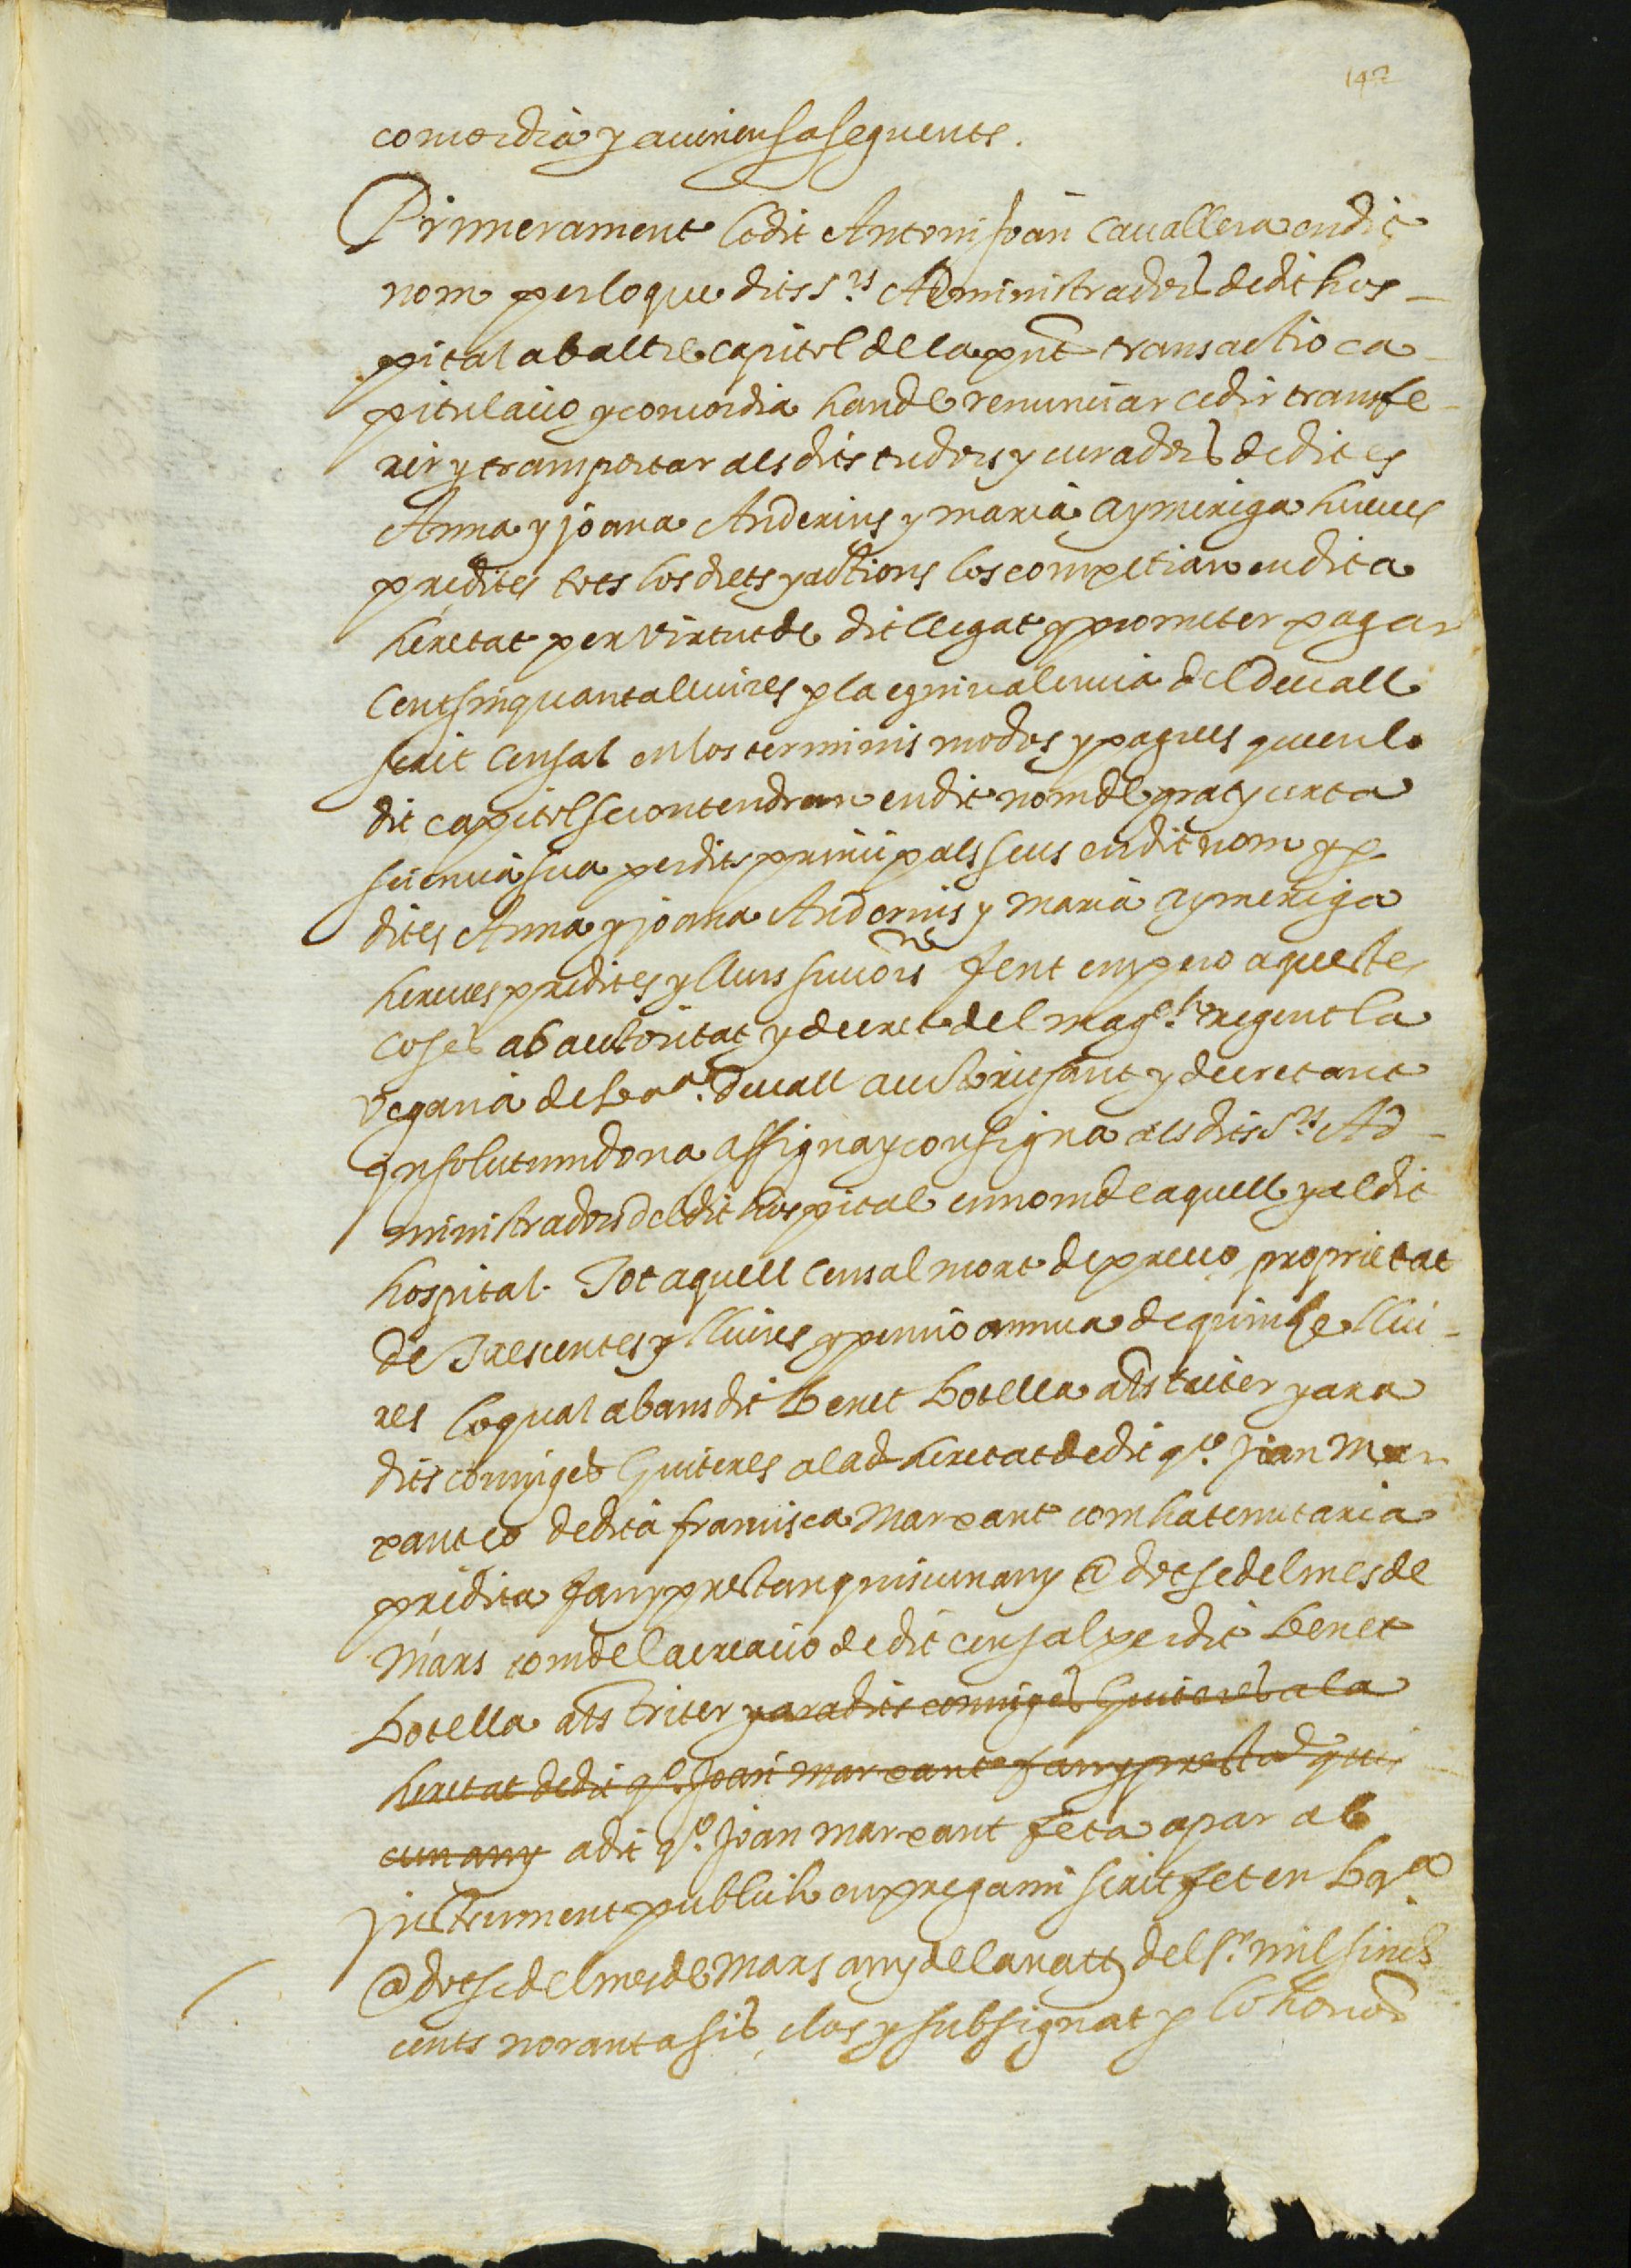 147
concordia y avinensa seguents.
Primerament lo dit Antoni Joan Cavallera en dit
nom per lo que dits Srs Administradors de dit hos-
pital ab altre capitol de la pnt transactio ca-
pitulacio y concordia han de renunciar cedir transfe-
rir y transportar als dits tudors y curadors de dites
Anna y joana Anderius y maria aymeriga hereues
predites tots los drets y actions los competian en dita
heretat per virtut de dit llegat y prometer pagar
Cent sinquanta lliures p la equivalencia del devall
scrit Censal en los terminis modos y pagues que en lo
dit capitol se contendran en dit nom de grat y certa
sciencia sua per dits principals seus en dit nom y p
dites Anna y joana Anderius y Maria aymeriga
hereues predites y llurs succrs fent empero aquestes
coses ab auctoritat y decret del magch regent la
vegaria de Bara. devall auctoritsant y decretant
Insolutumdona assigna y consigna als dits Srs Ad-
ministradors del dit hospital en nom de aquell y al dit
hospital. Tot aquell Censal mort de preu o proprietat
de Trescentes y lliures y pensio annua de quinse lliu-
res lo qual abans dit Benet Botella als triter y ara
dits conjuges Guiteres a la d heretat de dit qo. Joan Mar
xant o de dita francisca Marxant com ha tenutaria
predita fan y prestan quiscun any @ dotse del mes de
Mars com de la creacio de dit censal per dit Benet
Botella als triter y ara dits conjuges Guiteres a la
heretat de dit qo. Joan Marxant fan y presta quis
cun any a dit qo. Joan Marxant feta apar ab
Instrument publich en pregami scrit fet en Bara
@ dotse del mes de Mars any de la natt del Sr. mil sinch
cents noranta sis clos y subsignat p lo honor